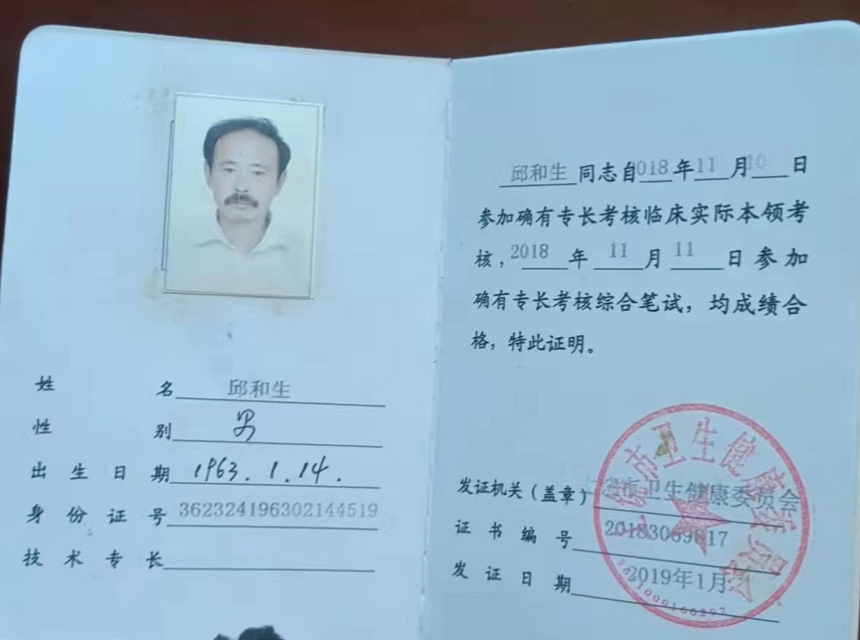 姓名 邱和生
性别 男
出生日期 1963.1.14.
身份证号 362324196302144519
技术专长
邱和生同志自2018年11月10日
参加确有专长考核临床实际本领考
核，2018年11月11日参加
确有专长考核综合笔试，均成绩合
格，特此证明。
发证机关（盖章） 市卫生健康委员会
证书编号
发证日期 2019年1月
市卫生健康委员会